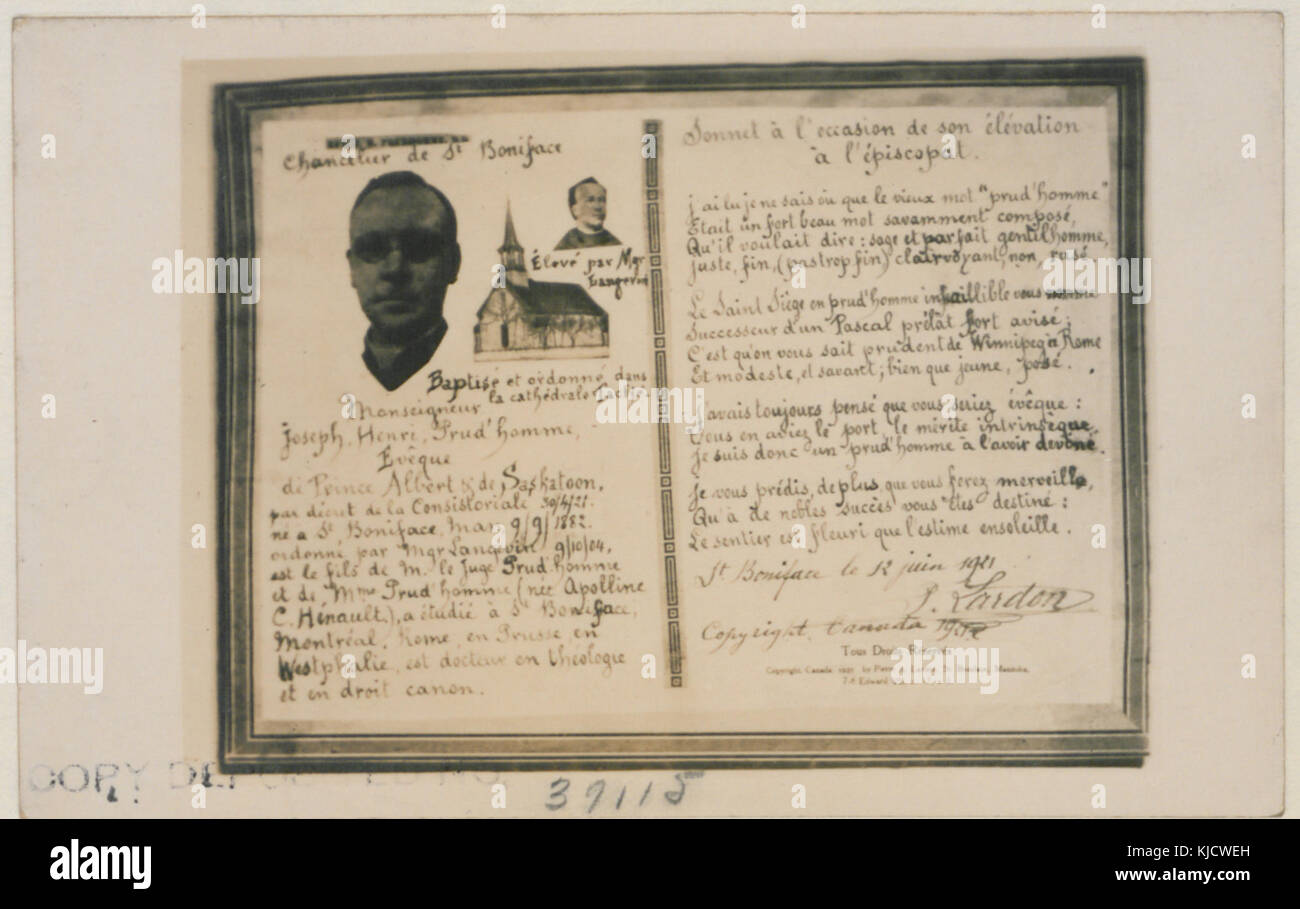 Chancelier de St Boniface
Élevé par Mgr
Langevin
Baptisé et ordonné dans
la cathédrale Taché.
Monseigneur
Joseph, Henri, Prud'homme,
Evêque
de Prince Albert & de Saskatoon,
par décret de la Consistoriale 30/4/21.
né a St Boniface, Man 9/9/1882.
ordonné par Mgr Langevin 9/10/04,
est le fils de M. le Juge Prud'homme
et de Mme Prud'homme (née Apolline
C. Hénault,), a étudié à St Boniface,
Montréal, Rome, en Prusse, en
Westphalie, est docteur en théologie
et en droit canon.
Sonnet à l'occasion de son élévation
à l'épiscopat.
J'ai lu je ne sais où que le vieux mot "prud'homme"
Etait un fort beau mot savamment composé,
Qu'il voulait dire: sage et parfait gentilhomme,
juste, fin, (pas trop fin) clairvoyant, non, rusé.
Le Saint Siège en prud'homme infaillible vous
Successeur d'un Pascal prélat fort avisé;
C'est qu'on vous sait prudent de Winnipeg à Rome
Et modeste, et savant; bien que jeune, posé.
J'avais toujours pensé que vous seriez évêque:
Vous en aviez le port le mérite intrinsèque,
Je suis donc un prud'homme à l'avoir deviné.
Je vous prédis, de plus, que vous ferez merveille,
Qu'à de nobles succès vous êtes destiné:
Le sentier est fleuri que l'estime ensoleille.
St Boniface le 12 juin 1921
P. Lardon
Copyright, Canada 1921
Tous Droits Réservés
Copyright, Canada, 1921, by Pierre Lardon, St. Boniface, Manitoba,
COPY DEPOSITED NO.
39115
alamy
Image ID: KJCWEH
www.alamy.com